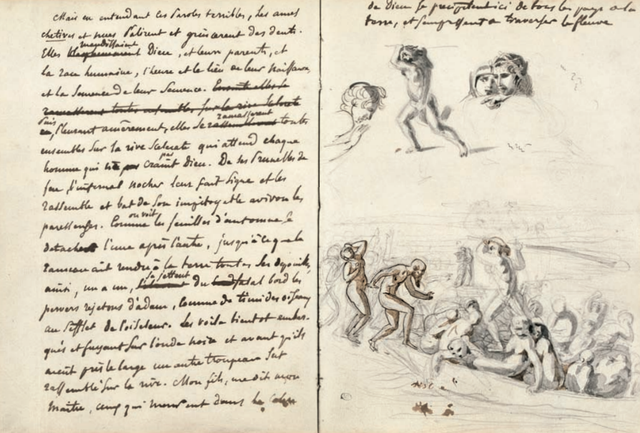 Mais en entendant ces Paroles terribles, les ames
chetives et nues Palirent et grincerent des dents.
Elles maudissaient Dieu, et leurs parents, et
la race humaine, l'heure et le lieu de leur naissance
et la Semence de leur Semence.
Puis, Pleurant amèrement, elles se ramassèrent toutes
ensembles sur la rive Scelerate qui attend chaque
homme qui ne craint pas Dieu. De ses Prunelles de
feu l'infernal nocher leur fait signe et les
rassemble et bat de son
paresseuses. Comme on voit les feuilles d'automne se
detacher l'une après l'autre, jusqu'à ce que le
rameau ait rendu à la terre toutes ses depouilles,
ainsi, un a un, se jettent du fatal bord les
pervers rejetons d'adam, comme de timides oiseaux
au Sifflet de l'oiseleur. Les voila bientot embar-
qués et fuyant sur l'onde noire et avant qu'ils
aient pris le large un autre troupeau s'est
rassemblé sur la rive. Mon fils, me dit mon
Maître, ceux qui meurent dans la colere
de Dieu se precipitent ici de tous les pays de la
terre, et s'empressent a traverser le fleuve